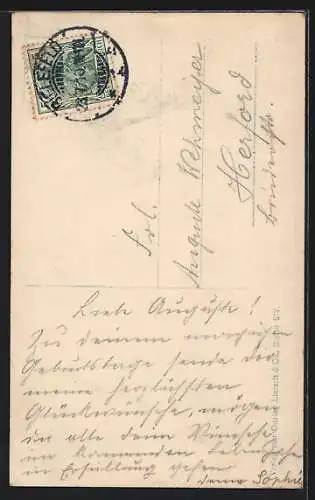 BIELEFELD
Frl.
Auguste Wehmeyer
Herford
Liebe Auguste!
Zu deinem morgigen
Geburtstage sende dir
meine herzlichsten
Glückwünsche, mögen
in alle denn Wünsche
im kommenden Lebensjahre
in Erfüllung gehen
deine Sophie